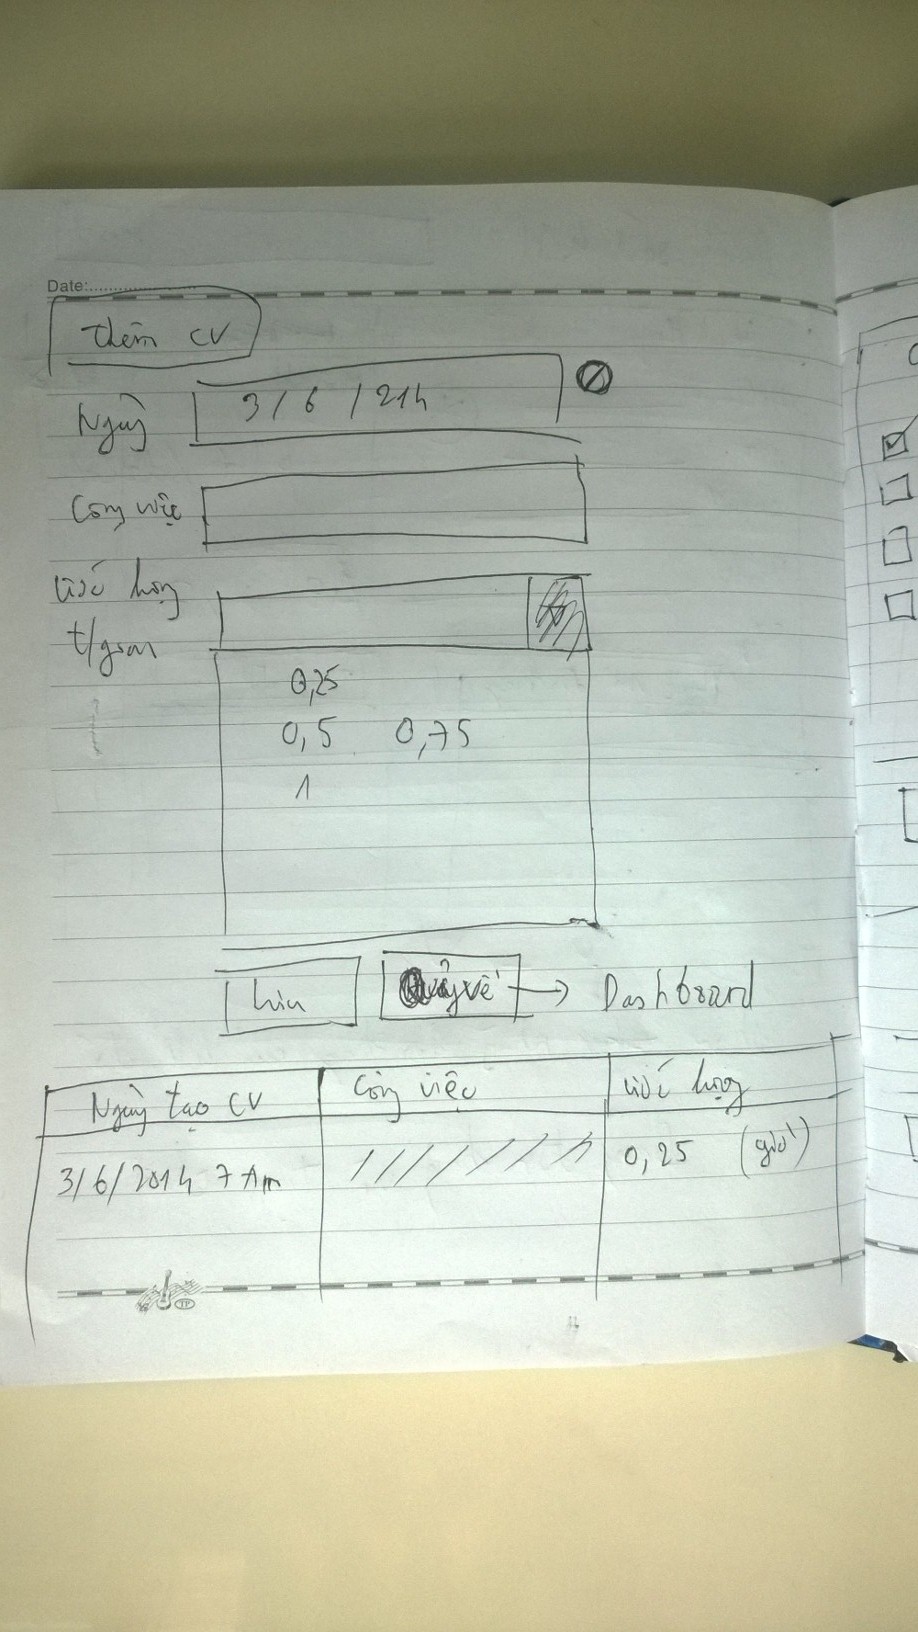 Date:
thêm CV
Ngày 3/6/214
Công việc
Ước lượng
t/gian
0,25
0,5 0,75
1
lưu Quay về → Dashboard
Ngày tạo CV Công việc Ước lượng
3/6/2014 7 Am 0,25 (giờ)